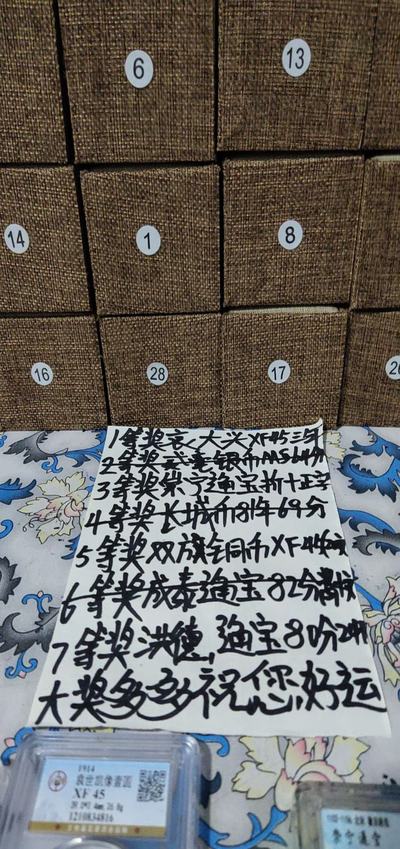 6
13
14
1
8
16
28
17
1等奖袁大头XF45三年
2等奖 银币MS64分
3等奖崇宁通宝折十正字
4等奖长城币81年69分
5等奖双旗铜币XF45
6等奖咸泰通宝82分
7等奖洪德通宝80分
大奖多多祝您好运
1914
袁世凯像壹圆
XF 45
1210834816
崇宁通宝